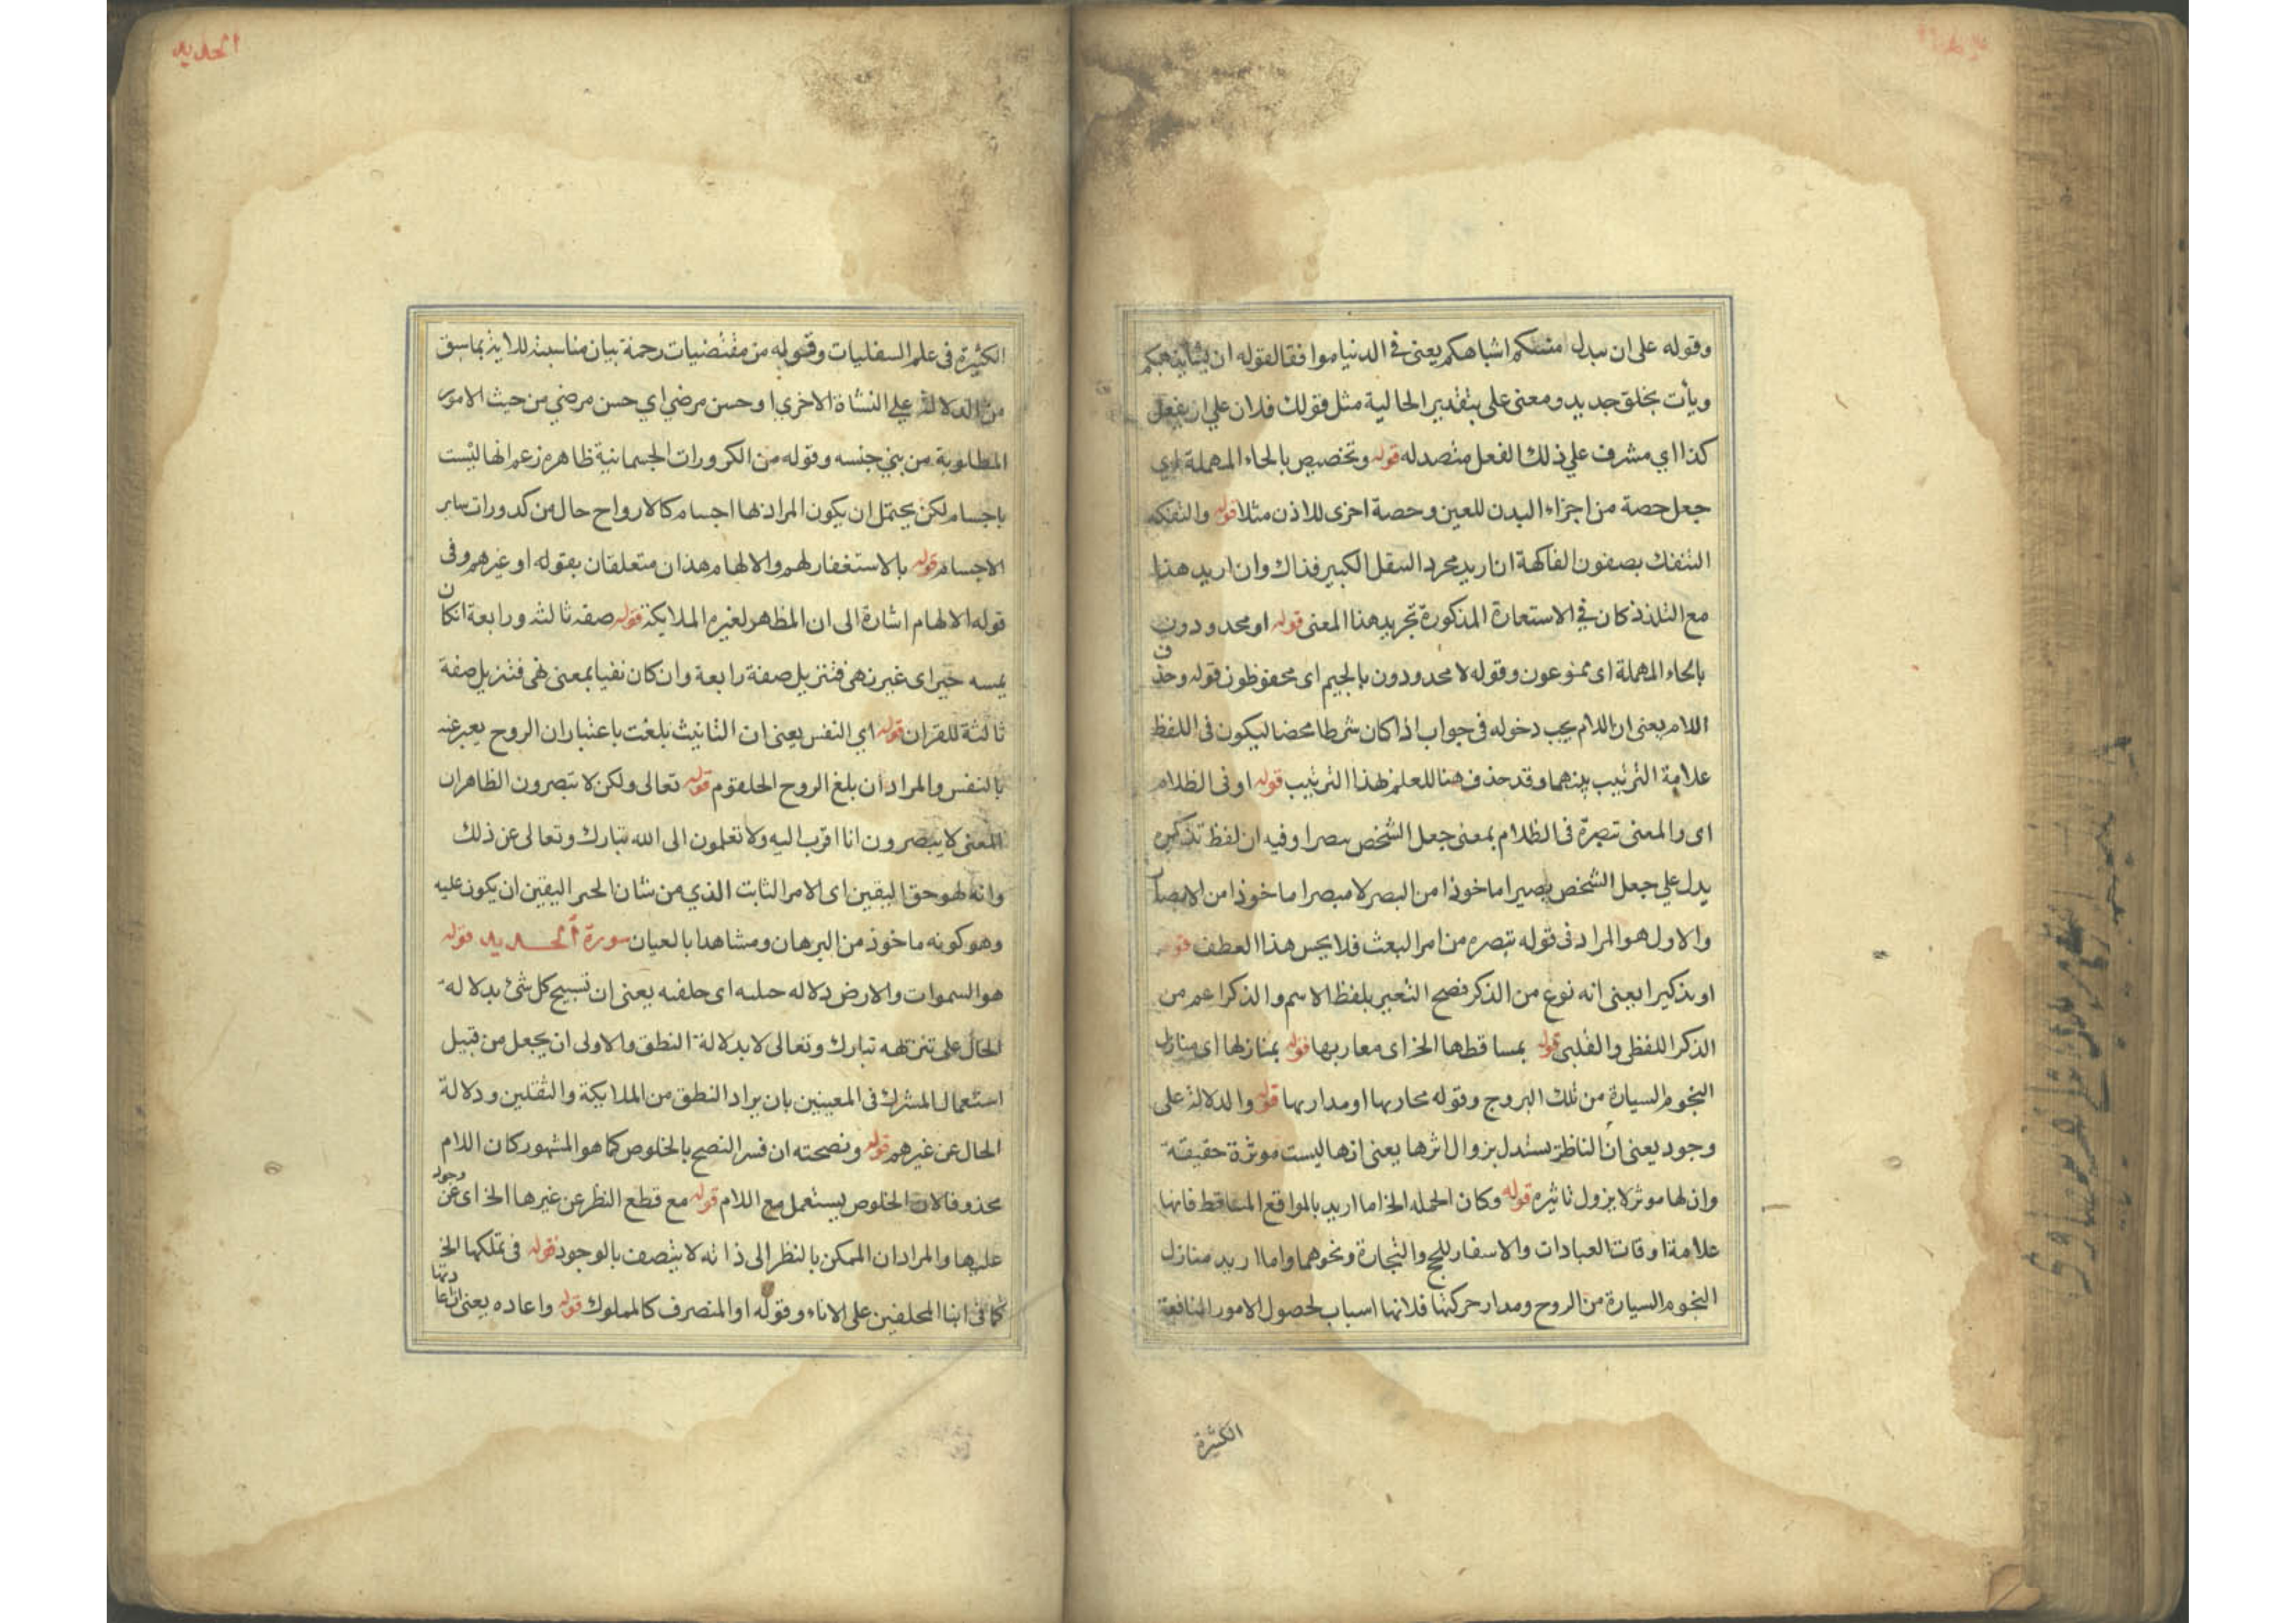 وقوله على ان نبدل منكم اشباهكم يعنى فى الدنيا موافقا لقوله ان يشأ يذهبكم
ويأت بخلق جديد ومعنى على بتقدير الحالية مثل قولك فلان علي ان يفعل
كذا اي مشرف علي ذلك الفعل متصد له قوله وتخصيص بالحاء المهملة اي
جعل حصة من اجزاء البدن للعين وحصة اخرى للاذن مثلا قوله والتفكه
التنقل بصفون الفاكهة ان اريد مجرد النقل الكبير فذاك وان اريد هذا
مع التلذذ كان في الاستعارة المذكورة تجريد هذا المعنى قوله او محدودون
بالحاء المهملة اى ممنوعون وقوله لا مجدودون بالجيم اى محفوظون قوله وحذف
اللام يعنى ان اللام يجب دخوله فى جواب اذا كان شرطا محضا ليكون فى اللفظ
علامة الترتيب بينهما وقد حذف هنا للعلم بهذا الترتيب قوله او فى الظلام
اى والمعنى تبصرة فى الظلام بمعنى جعل الشخص مبصرا وفيه ان لفظ تذكير
يدل علي جعل الشخص بصيرا ماخوذا من البصر لا مبصرا ماخوذا من الابصار
والاول هو المراد فى قوله تبصره من امر البعث فلا يحسن هذا العطف قوله
او تذكيرا يعنى انه نوع من الذكر فصح التعبير بلفظ الاسم والذكر اعم من
الذكر اللفظى والقلبى قوله بمساقطها الخ اى مغاربها قوله بمنازلها اى منازل
النجوم السيارة من تلك البروج وقوله مجاريها او مدارها قوله والدلالة على
وجود يعنى ان الناظر يستدل بزوال اثرها يعنى انها ليست موثرة حقيقة
وان لها موثر لا يزول تاثيره قوله وكان الجمله الخ اما اريد بالمواقع المساقط فانها
علامة اوقات العبادات والاسفار للحج والتجارة ونحوهما واما اريد منازل
النجوم السيارة من الروح ومدار حركتها فلانها اسباب لحصول الامور النافعة
الكثيرة
الحديد
الكثيرة فى علم السفليات وقوله من مقتضيات رحمة بيان مناسبة للاية بما سبق
من الدلالة علي النشاة الاخري او حسن مرضي اي حسن مرضي من حيث الامور
المطلوبة من بني جنسه وقوله من الكرورات الجسمانية ظاهره زعم انها ليست
باجسام لكن يحتمل ان يكون المراد بها اجسام كالارواح حال من كدورات ساير
الاجسام قوله بالاستغفار لهم والالهام هذان متعلقان بقوله او غيرهم وفى
قوله الالهام اشارة الى ان المظهر لغيره الملايكة قوله صفة ثالثة ورابعة ان كان
يمسه خبرا اى غير نهى فتنزيل صفة رابعة وان كان نفيا بمعنى نهى فتنزيل صفة
ثالثة للقران قوله اي النفس يعنى ان التانيث بلغت باعتبار ان الروح يعبر عنه
بالنفس والمراد ان بلغ الروح الحلقوم قوله تعالى ولكن لا تبصرون الظاهر ان
المعنى لا يبصرون انا اقرب اليه ولا تعلمون الى الله تبارك وتعالى عن ذلك
وانه لهو حق اليقين اى الامر الثابت الذي من شان الخبر اليقين ان يكون عليه
وهو كونه ماخوذ من البرهان ومشاهدا بالعيان سورة الحديد قوله
هو السموات والارض دلاله جبلية اى خلقيه يعنى ان تسبيح كل شئ بدلالة
الحال على تنزيهه تبارك وتعالى لا بدلالة النطق والاولى ان يجعل من قبيل
استعمال المشترك فى المعنيين بان يراد النطق من الملايكة والثقلين ودلالة
الحال عن غيرهم قوله ونصحته ان فسر النصح بالخلوص كما هو المشهور كان اللام
محذوفا لان الخلوص يستعمل مع اللام قوله مع قطع النظر عن غيرها الخ اى عن وجود
عليها والمراد ان الممكن بالنظر الى ذاته لا يتصف بالوجود قوله فى تملكها الخ
كما فى ابنا المحلفين على الاناء وقوله او المنصرف كالمملوك قوله واعاده يعنى